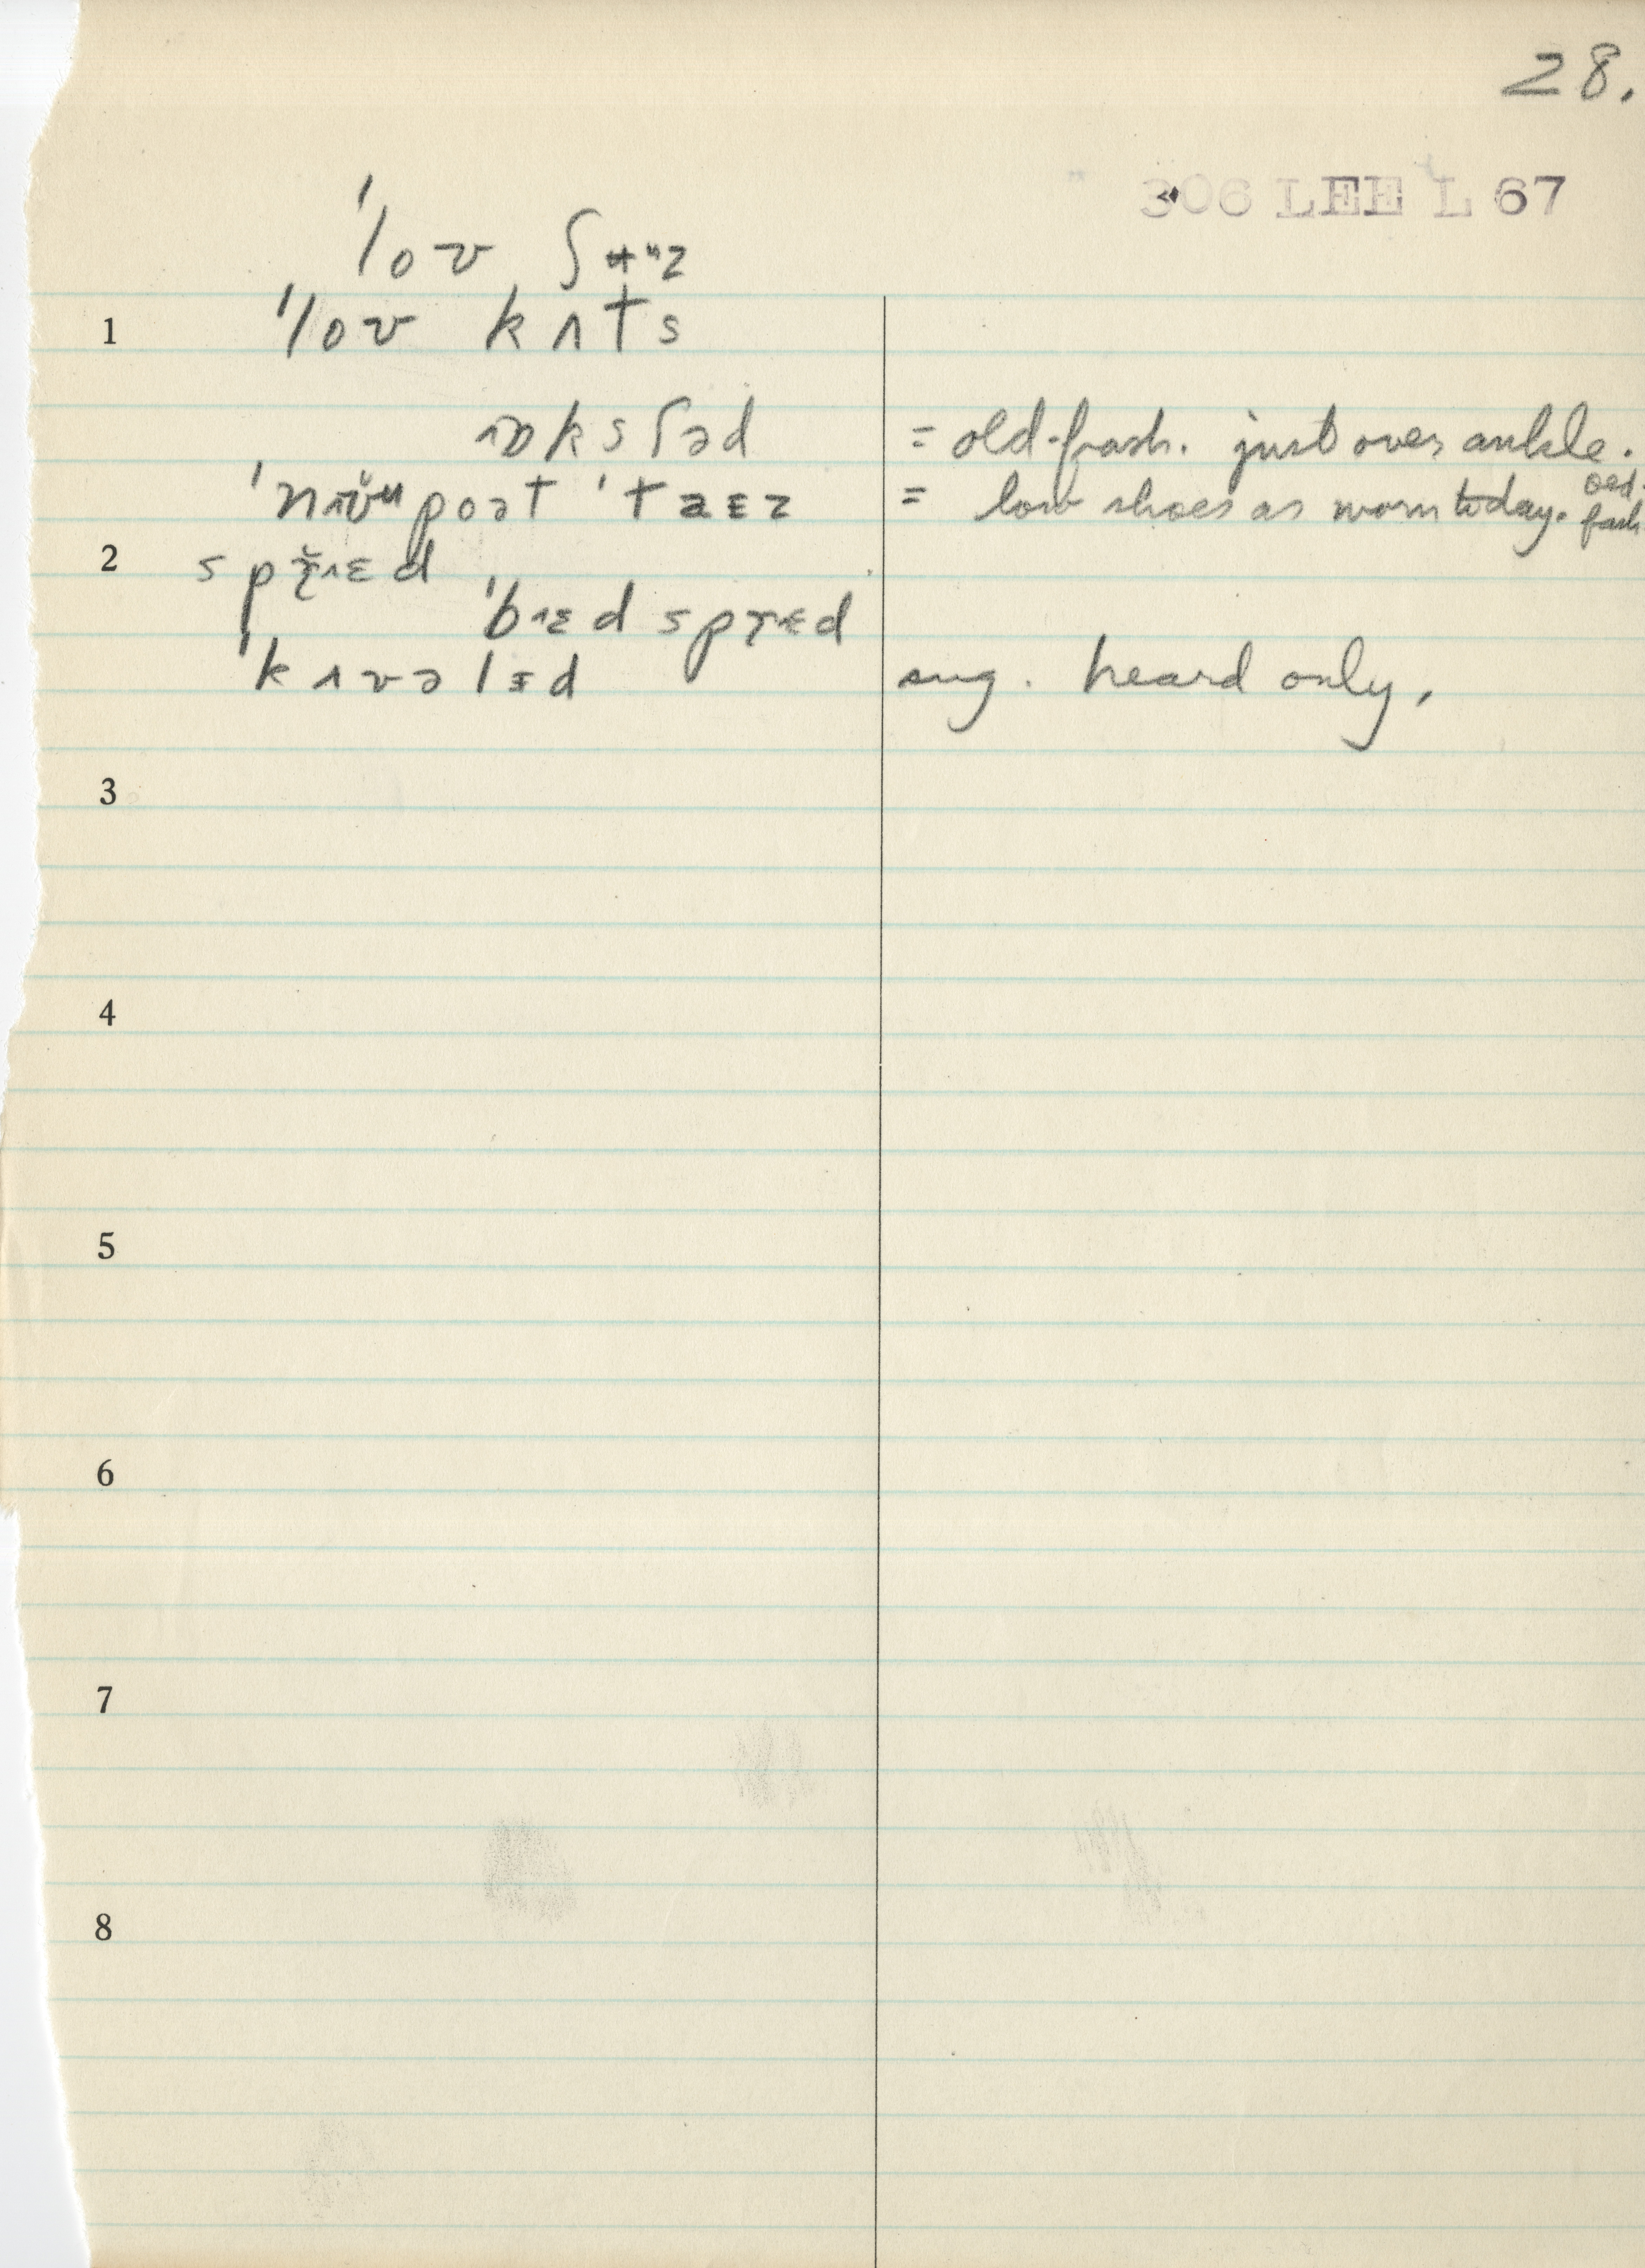 28.
306 LEE L 67
ˈloʊ ʃʉuz
1 ˈloʊ kʌts
ɒksfəd = old-fash. just over ankle.
ˈnɪʊ̆upoət ˈtaɛz = low shoes as worn today. old-fash
2 sprɛd
ˈbɛd sprɛd
ˈkʌvəlɪd sug. heard only.
3
4
5
6
7
8